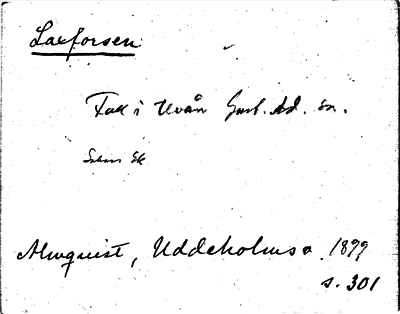 Laxforsen
Fall i Uvån Gust. Ad. sn.
Almquist, Uddeholms 1899
s. 301